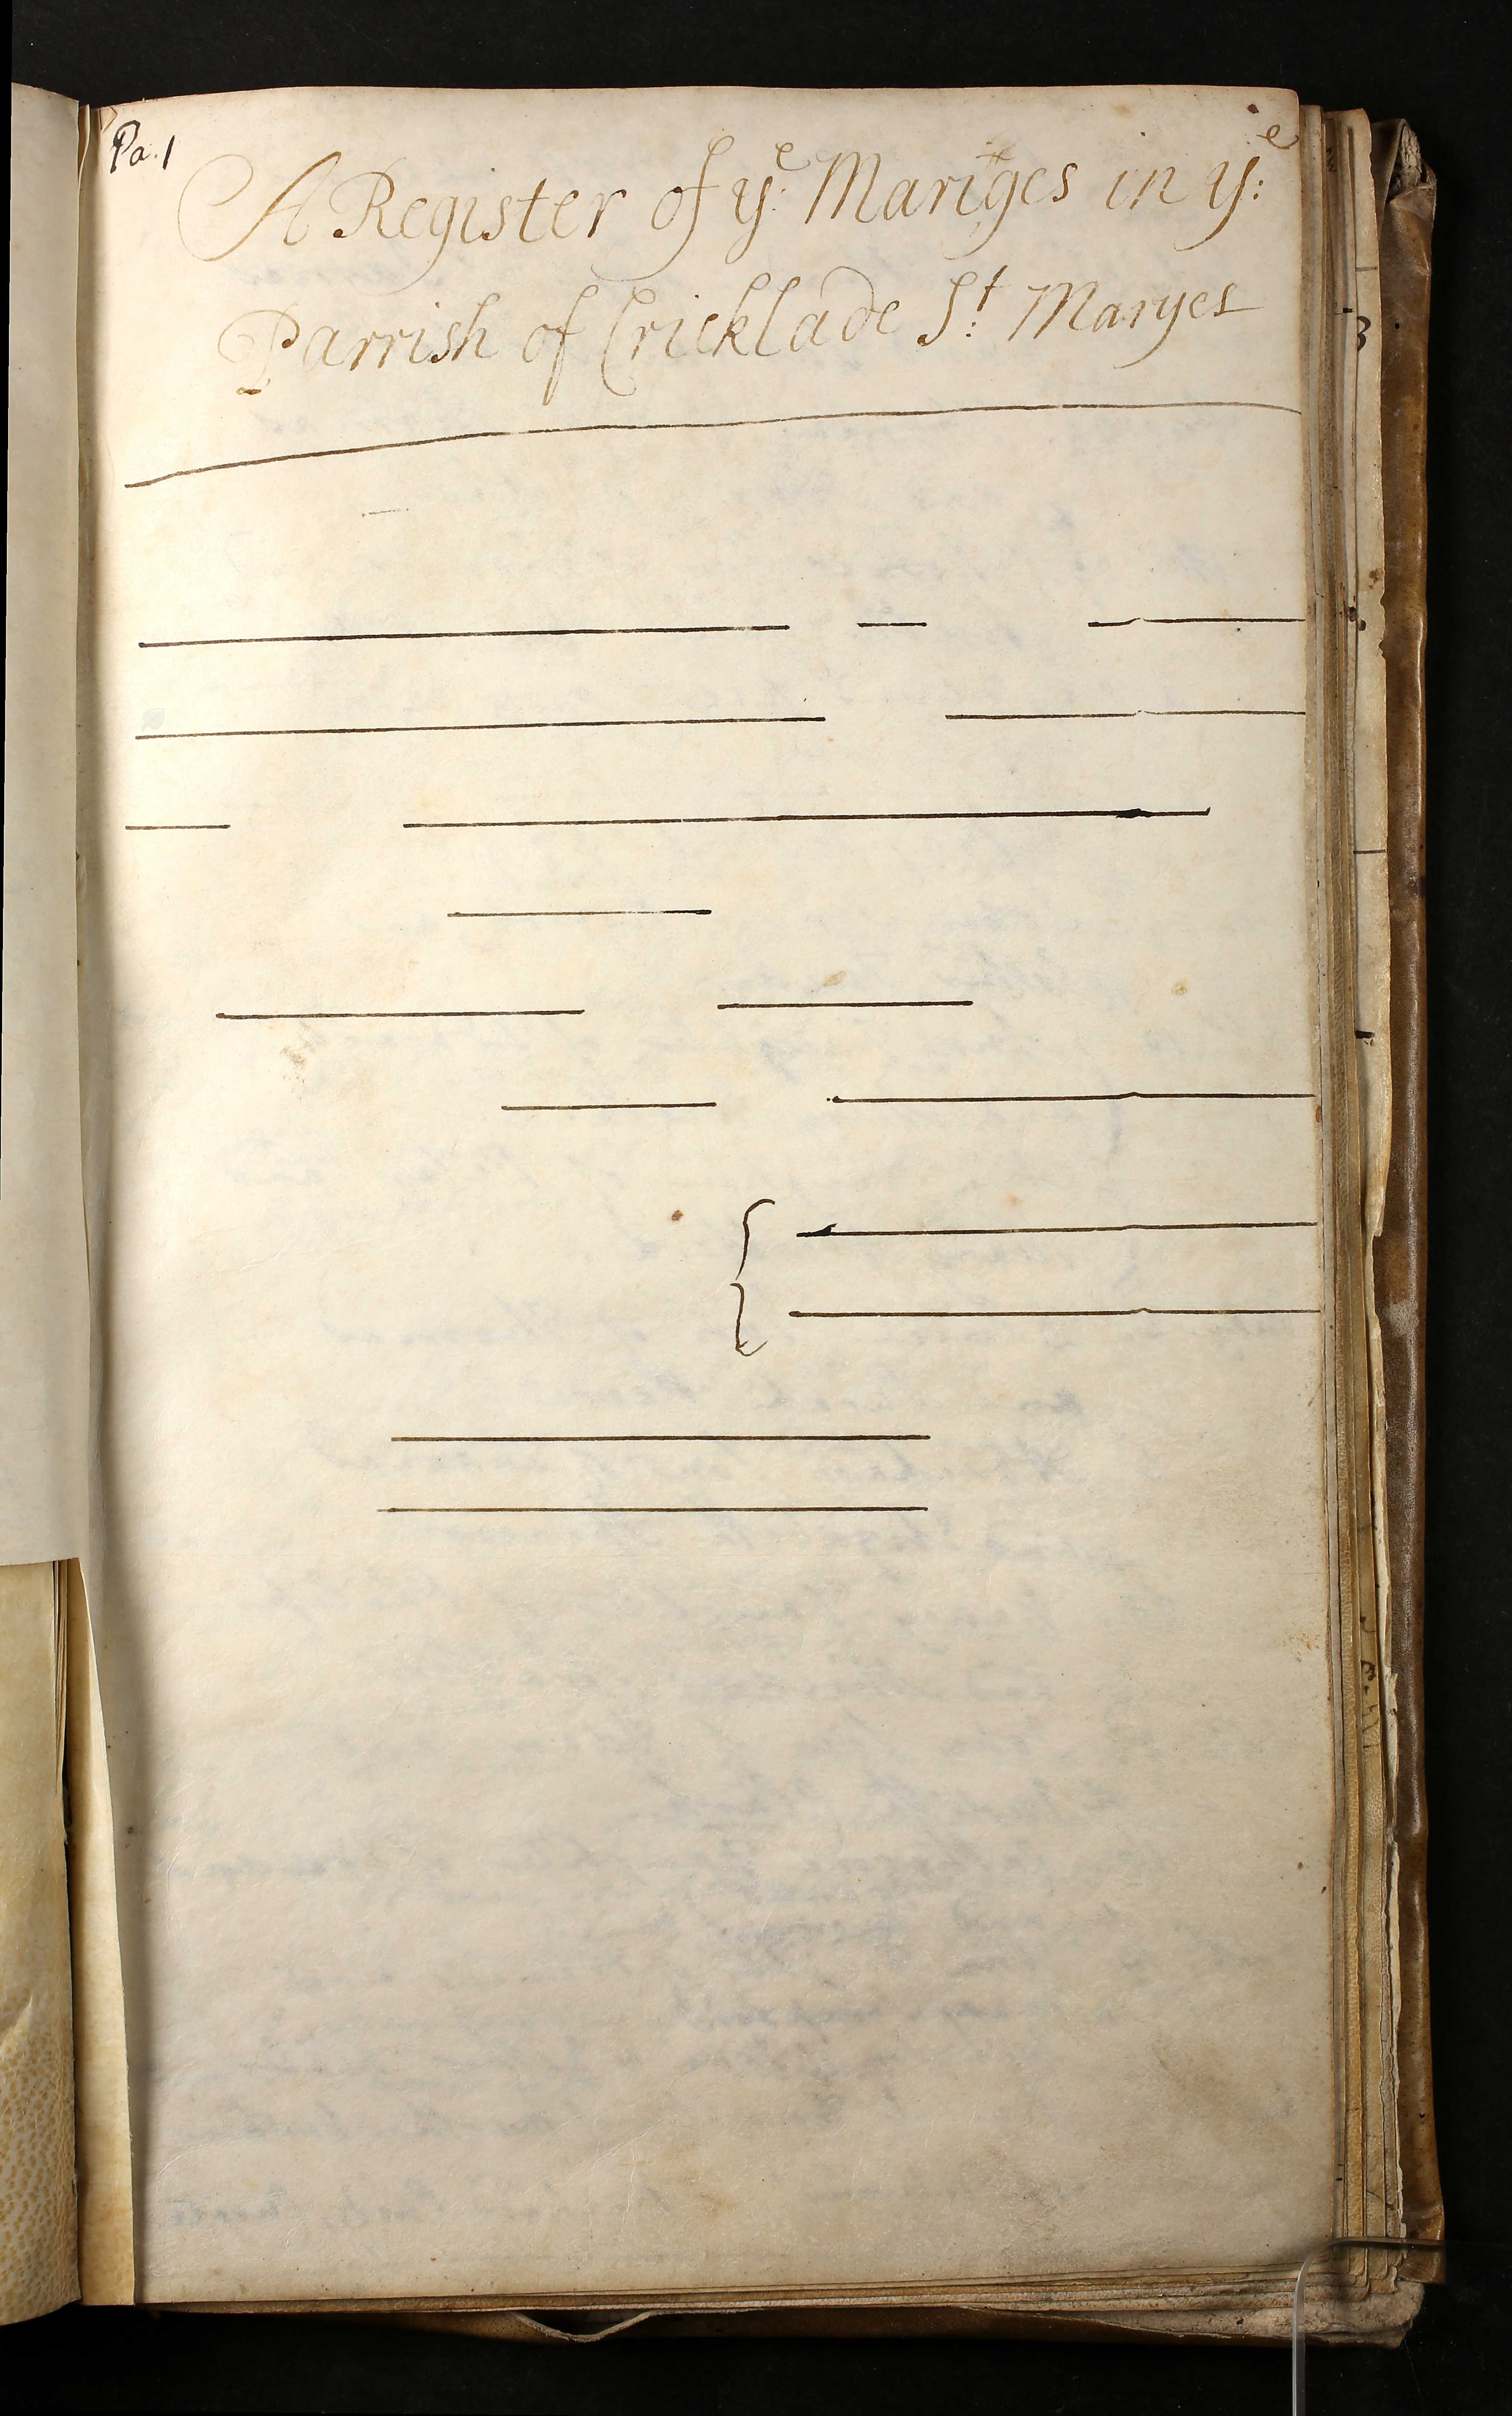 Pa. 1
A Register of yͤ: Mariges in yͤ:
Parrish of Cricklade Sᵗ: Maryes